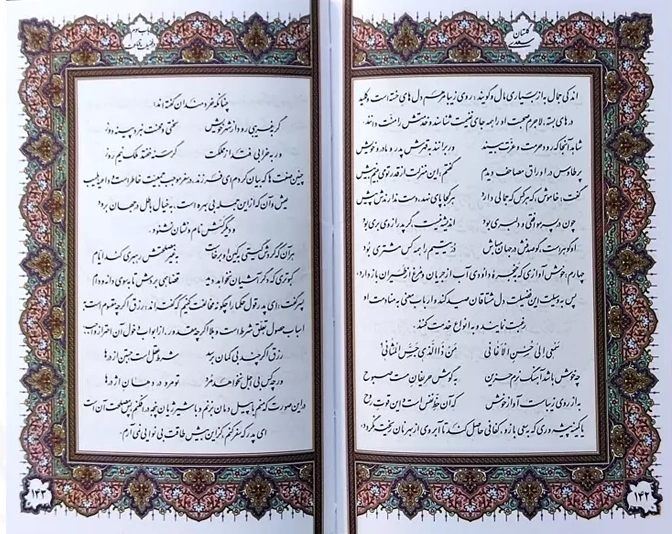 گلستان
سعدی
اندکی جمال به از بسیاری مال و گویند: روی زیبا مرهم دل‌های خسته است و کلید
در‌های بسته، لاجرم صحبت او را همه جای غنیمت شناسند و خدمتش را منت دانند.
شاهد آنجا که رود حرمت و عزت بیند ور برانند به قهرش پدر و مادر و خویش
پر طاووس در اوراق مصاحف دیدم گفتم: این منزلت از قدر تو می‌بینم بیش
گفت: خاموش که هر کس که جمالی دارد هر کجا پای نهد، دست ندارندش پیش
چون در پسر موافقی و دلبری بود اندیشه نیست گر پدر از وی بری بود
او گوهر است گو صدفش در جهان مباش در یتیم را همه کس مشتری بود
چهارم، خوش آوازی که به حنجره داوودی آب از جریان و مرغ از طیران باز دارد.
پس به وسیلت این فضیلت دل مشتاقان صید کند و ارباب معنی به منادمت او
رغبت نمایند و به انواع خدمت کنند.
سَمعی اِلی حُسنِ الاَغانی مَن ذَا الَّذی جَسَّ المَثانی
چه خوش باشد آهنگ نرم حزین به گوش حریفان مست صبوح
به از روی زیباست آواز خوش که آن حظ نفس است و این قوت روح
یا کمینه پیشه‌وری که به سعی بازو، کفافی حاصل کند تا آبروی از بهر نان ریخته نگردد،
۱۴۲
باب سوم
در فضیلت قناعت
چنانکه خردمندان گفته‌اند:
گر غریبی رود از شهر خویش سختی و محنت نبرد پینه دوز
ور به خرابی فتد از مملکت گرسنه خفتد ملک نیم روز
چنین صفت‌ها که بیان کردم ای فرزند، در سفر موجب جمعیت خاطر است و داعیه طیب
عیش و آن که از این جمله بی بهره است، به خیال باطل در جهان برود
و دیگر کسش نام و نشان نشنود.
هر آن که گردش گیتی به کین او برخاست به غیر مصلحتش رهبری کند ایام
کبوتری که دگر آشیان نخواهد دید قضا همی بردش تا به سوی دانه و دام
پسر گفت: ای پدر قول حکما را چگونه مخالفت کنیم که گفته‌اند: رزق اگر چه مقسوم است،
اسباب حصول تعلق شرط است و بلا اگر چه مقدور، از ابواب دخول آن احتراز واجب.
رزق اگر چند بی گمان برسد شرط عقل است جستن از درها
ور چه کس بی اجل نخواهد مرد تو مرو در دهان اژدرها
در این صورت که منم با پیل دمان بزنم و با شیر ژیان پنجه در افکنم، پس مصلحت آن است
ای پدر که سفر کنم، کز این بیش طاقت بی نوایی نمی آرم.
۱۴۳